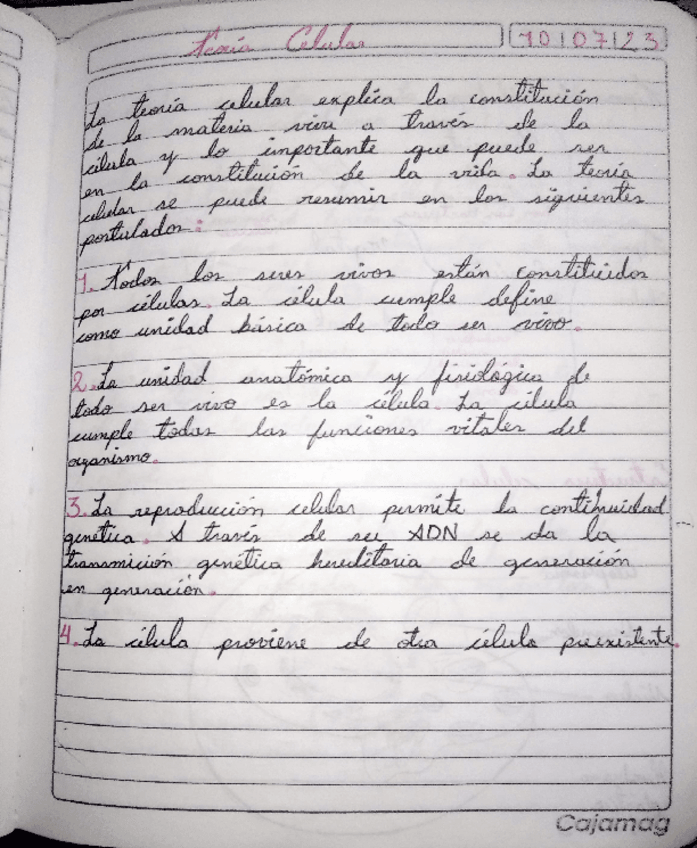 Teoría Celular
10/07/23
La teoría celular explica la constitución
de la materia viva a través de la
célula y lo importante que puede ser
en la constitución de la vida. La teoría
celular se puede resumir en los siguientes
postulados:
1. Todos los seres vivos están constituidos
por células. La célula cumple define
como unidad básica de todo ser vivo.
2. La unidad anatómica y fisiológica de
todo ser vivo es la célula. La célula
cumple todas las funciones vitales del
organismo.
3. La reproducción celular permite la continuidad
genética. A través de su ADN se da la
transmición genética hereditaria de generación
en generación.
4. La célula proviene de otra célula preexistente.
Cajamag